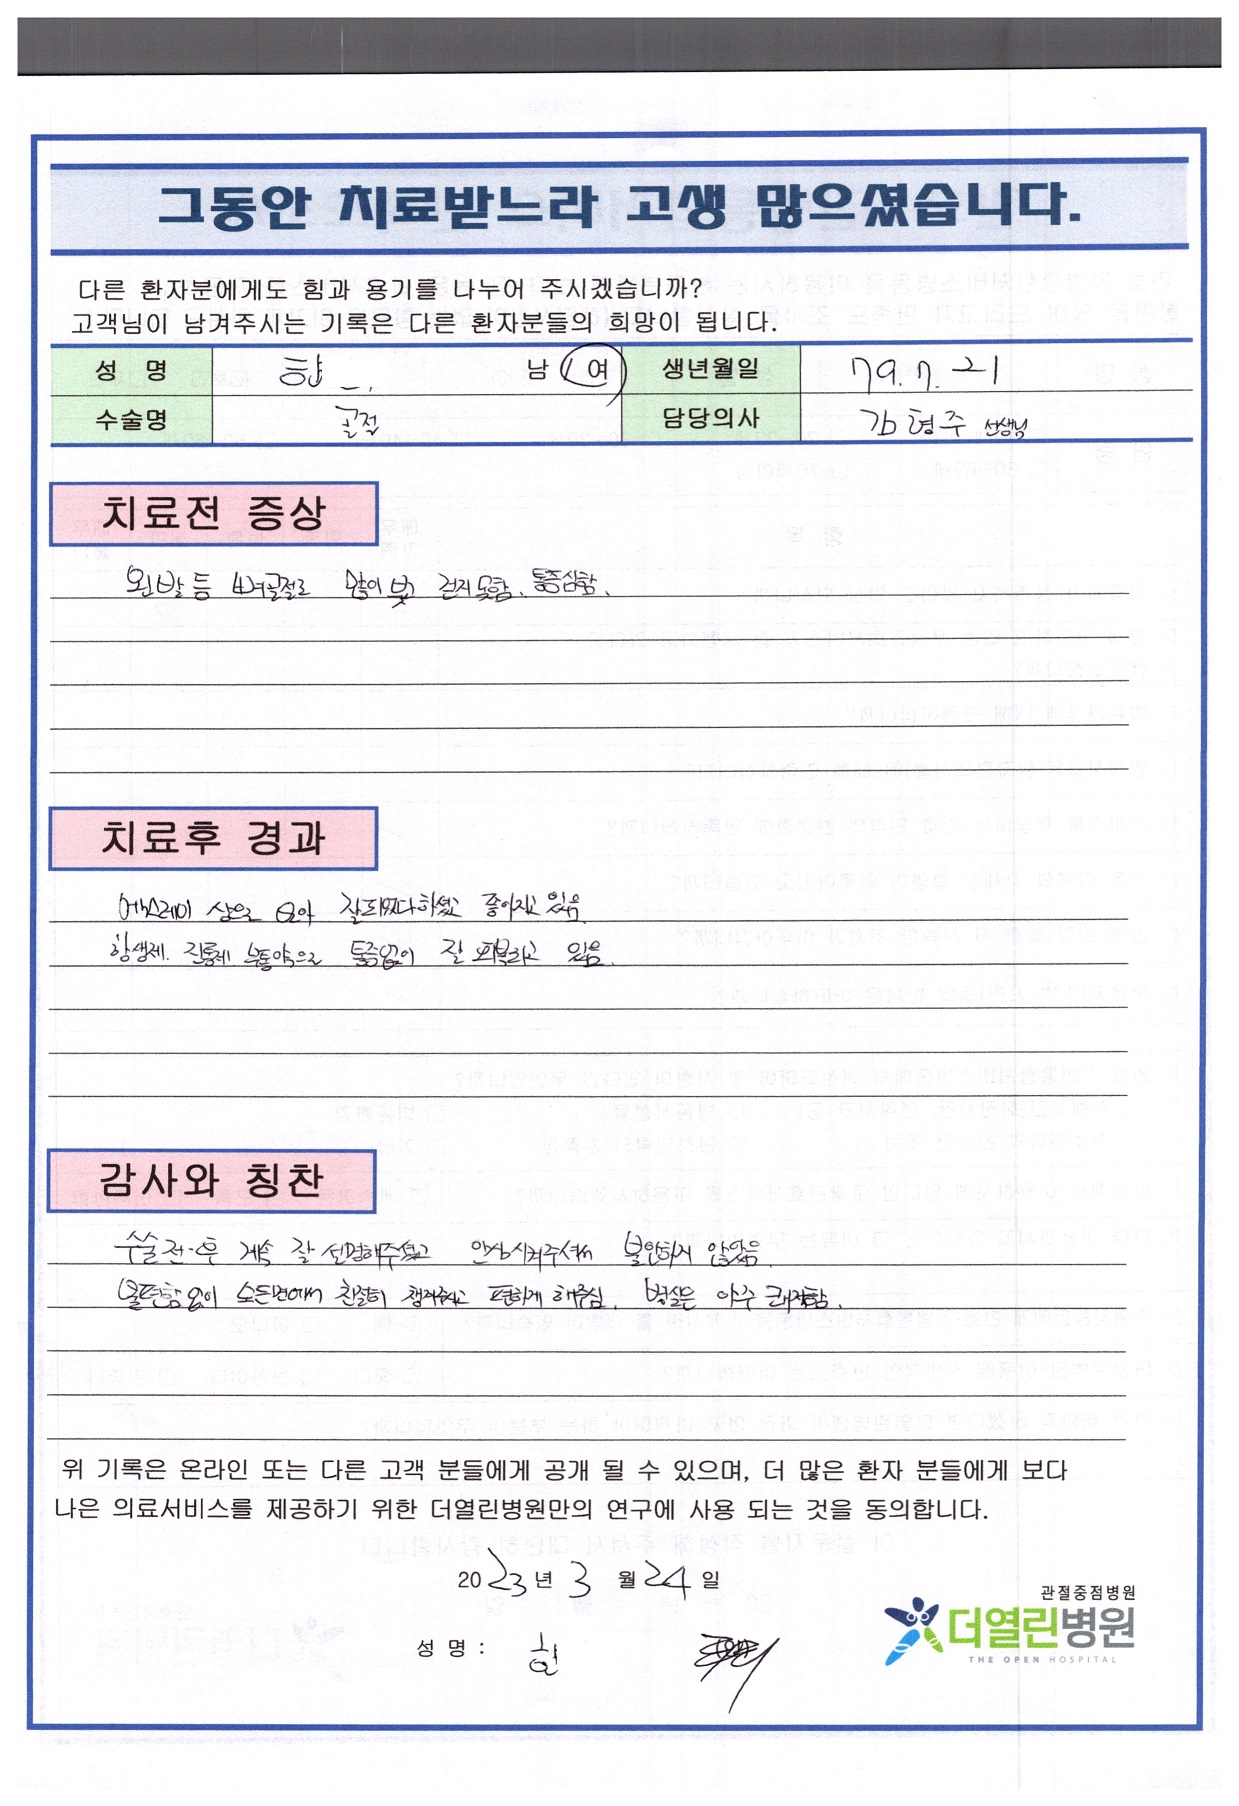 그동안 치료받느라 고생 많으셨습니다.
다른 환자분에게도 힘과 용기를 나누어 주시겠습니까?
고객님이 남겨주시는 기록은 다른 환자분들의 희망이 됩니다.
성 명 남 / 여 생년월일 79. 7. 21
수술명 골절 담당의사 김형주 선생님
치료전 증상
왼발등 뼈골절로 많이 붓고 걷지못함. 통증심함.
치료후 경과
엑스레이 상으로 잘되었다하셨고 좋아지고 있음.
항생제. 진통제. 약으로 통증없이 잘 회복하고 있음.
감사와 칭찬
수술 전·후 계속 잘 설명해주셨고 안심시켜주셔서 불안하지 않았음.
불편함 없이 모든면에서 친절히 챙겨주시고 편하게 해주심. 병실은 아주 쾌적함.
위 기록은 온라인 또는 다른 고객 분들에게 공개 될 수 있으며, 더 많은 환자 분들에게 보다
나은 의료서비스를 제공하기 위한 더열린병원만의 연구에 사용 되는 것을 동의합니다.
2023 년 3 월 24 일
성 명 :
관절중점병원
더열린병원
THE OPEN HOSPITAL